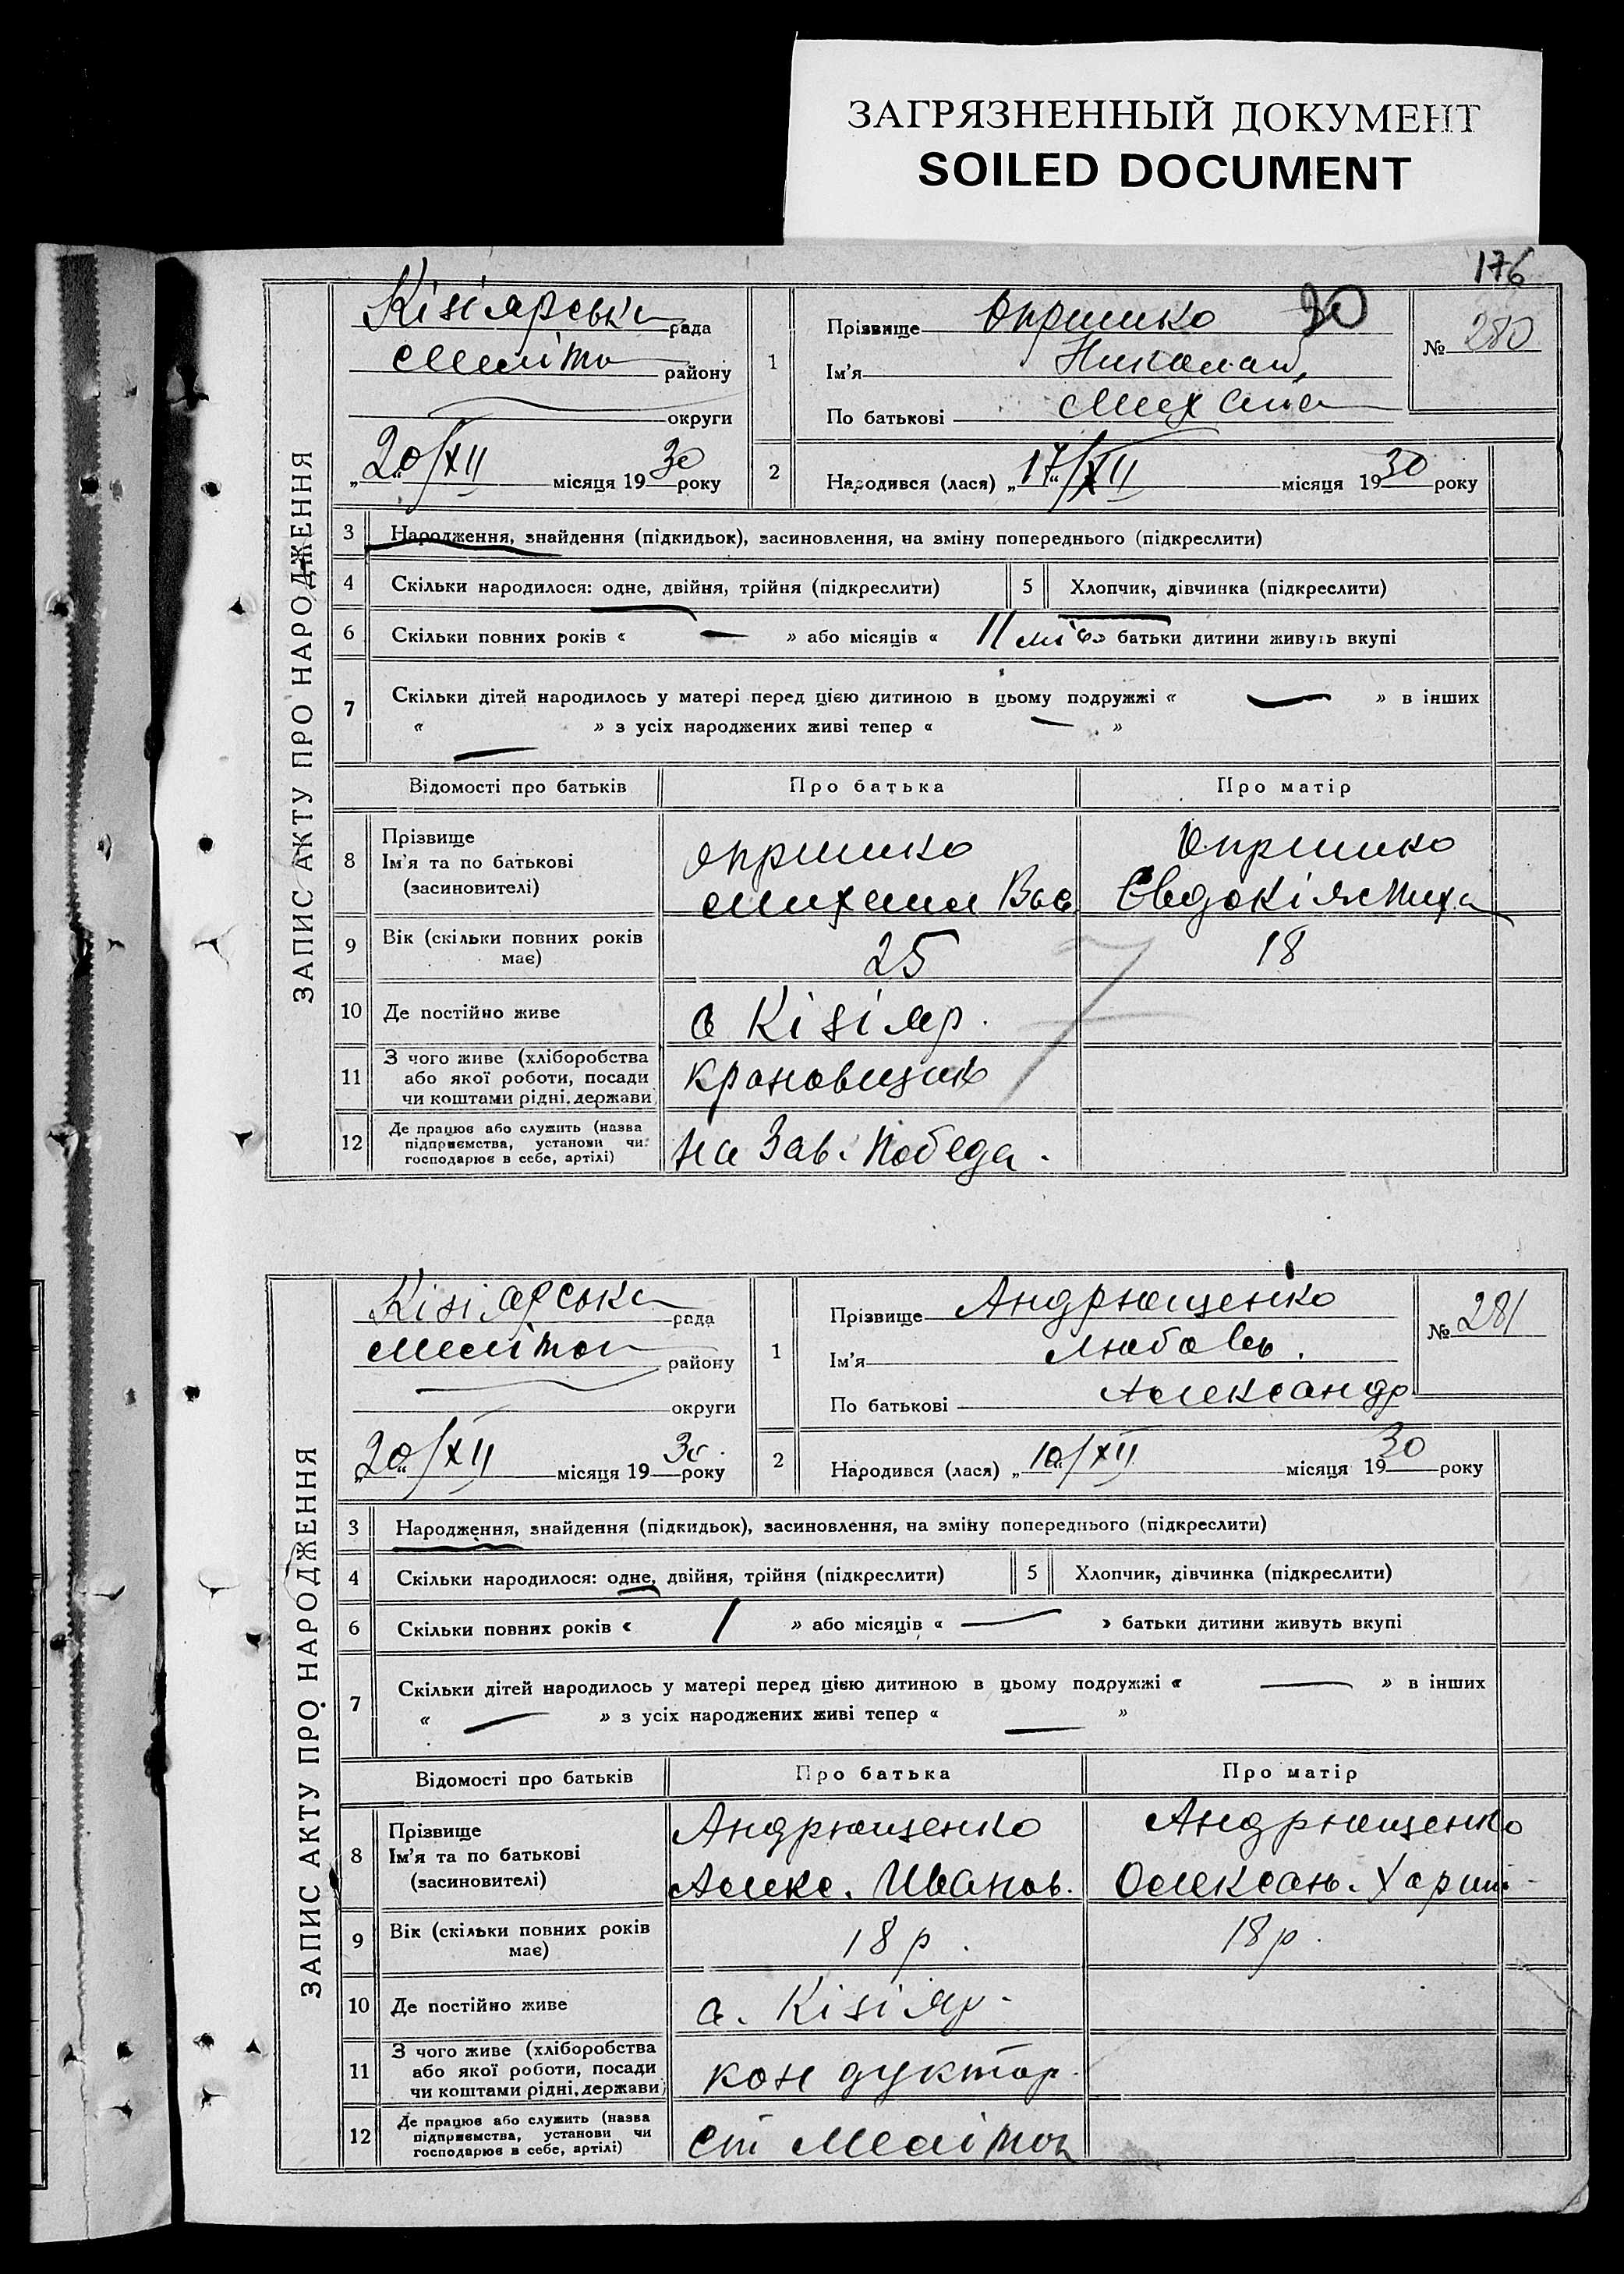 ЗАГРЯЗНЕННЫЙ ДОКУМЕНТ
SOILED DOCUMENT
176
ЗАПИС АКТУ ПРО НАРОДЖЕННЯ
Кізіярська рада
Меліто району
округи
„20“/XII місяця 1930 року
1
Прізвище Опришко 20
Ім'я Николай
По батькові Михайл
№ 280
2
Народився (лася) „17“/XII місяця 1930 року
3 Народження, знайдення (підкидьок), засиновлення, на зміну попереднього (підкреслити)
4 Скільки народилося: одне, двійня, трійня (підкреслити) 5 Хлопчик, дівчинка (підкреслити)
6 Скільки повних років « — » або місяців « 11 міс » батьки дитини живуть вкупі
7 Скільки дітей народилось у матері перед цією дитиною в цьому подружжі « — » в інших
« — » з усіх народжених живі тепер « — »
Відомості про батьків Про батька Про матір
8 Прізвище
Ім'я та по батькові
(засиновителі)
Опришко
Михаил Вас
Опришко
Євдокія Миха
9 Вік (скільки повних років має) 25 18
7
10 Де постійно живе с Кізіяр.
11 З чого живе (хліборобства
або якої роботи, посади
чи коштами рідні, держави)
крановщик
12 Де працює або служить (назва
підприємства, установи чи
господарює в себе, артілі)
на Зав. Победа.
ЗАПИС АКТУ ПРО НАРОДЖЕННЯ
Кізіярська рада
Мелітоп району
округи
„20“/XII місяця 1930. року
1
Прізвище Андрющенко
Ім'я Любовь.
По батькові Александр
№ 281
2
Народився (лася) „10“/XII місяця 1930 року
3 Народження, знайдення (підкидьок), засиновлення, на зміну попереднього (підкреслити)
4 Скільки народилося: одне, двійня, трійня (підкреслити) 5 Хлопчик, дівчинка (підкреслити)
6 Скільки повних років « 1 » або місяців « — » батьки дитини живуть вкупі
7 Скільки дітей народилось у матері перед цією дитиною в цьому подружжі « — » в інших
« — » з усіх народжених живі тепер « — »
Відомості про батьків Про батька Про матір
8 Прізвище
Ім'я та по батькові
(засиновителі)
Андрющенко
Алекс. Иванов.
Андрющенко
Олексан. Харит
9 Вік (скільки повних років має) 18 р. 18 р.
10 Де постійно живе с. Кізіяр.
11 З чого живе (хліборобства
або якої роботи, посади
чи коштами рідні, держави)
кондуктор.
12 Де працює або служить (назва
підприємства, установи чи
господарює в себе, артілі)
ст Мелітоп